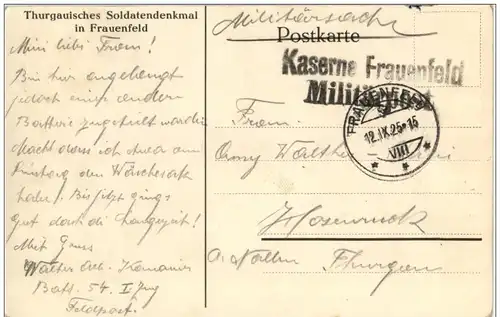 Thurgauisches Soldatendenkmal
in Frauenfeld
Mini liebi Frau!
Bin hier angelangt
jedoch einer andern
Batterie zugeteilt worden
Macht dass ich etwa am
den Wäschesack
habe! Bis jetzt gings
gut doch di Langizyt!
Mit Gruss
Walter Kanonier
Batt. 54. I Zug
Feldpost.
Militärsache
Postkarte
Kaserne Frauenfeld
Militärpost
FRAUENFELD
12.IX.25-15
VIII
Frau
Walther
Hosenruck
Thurgau